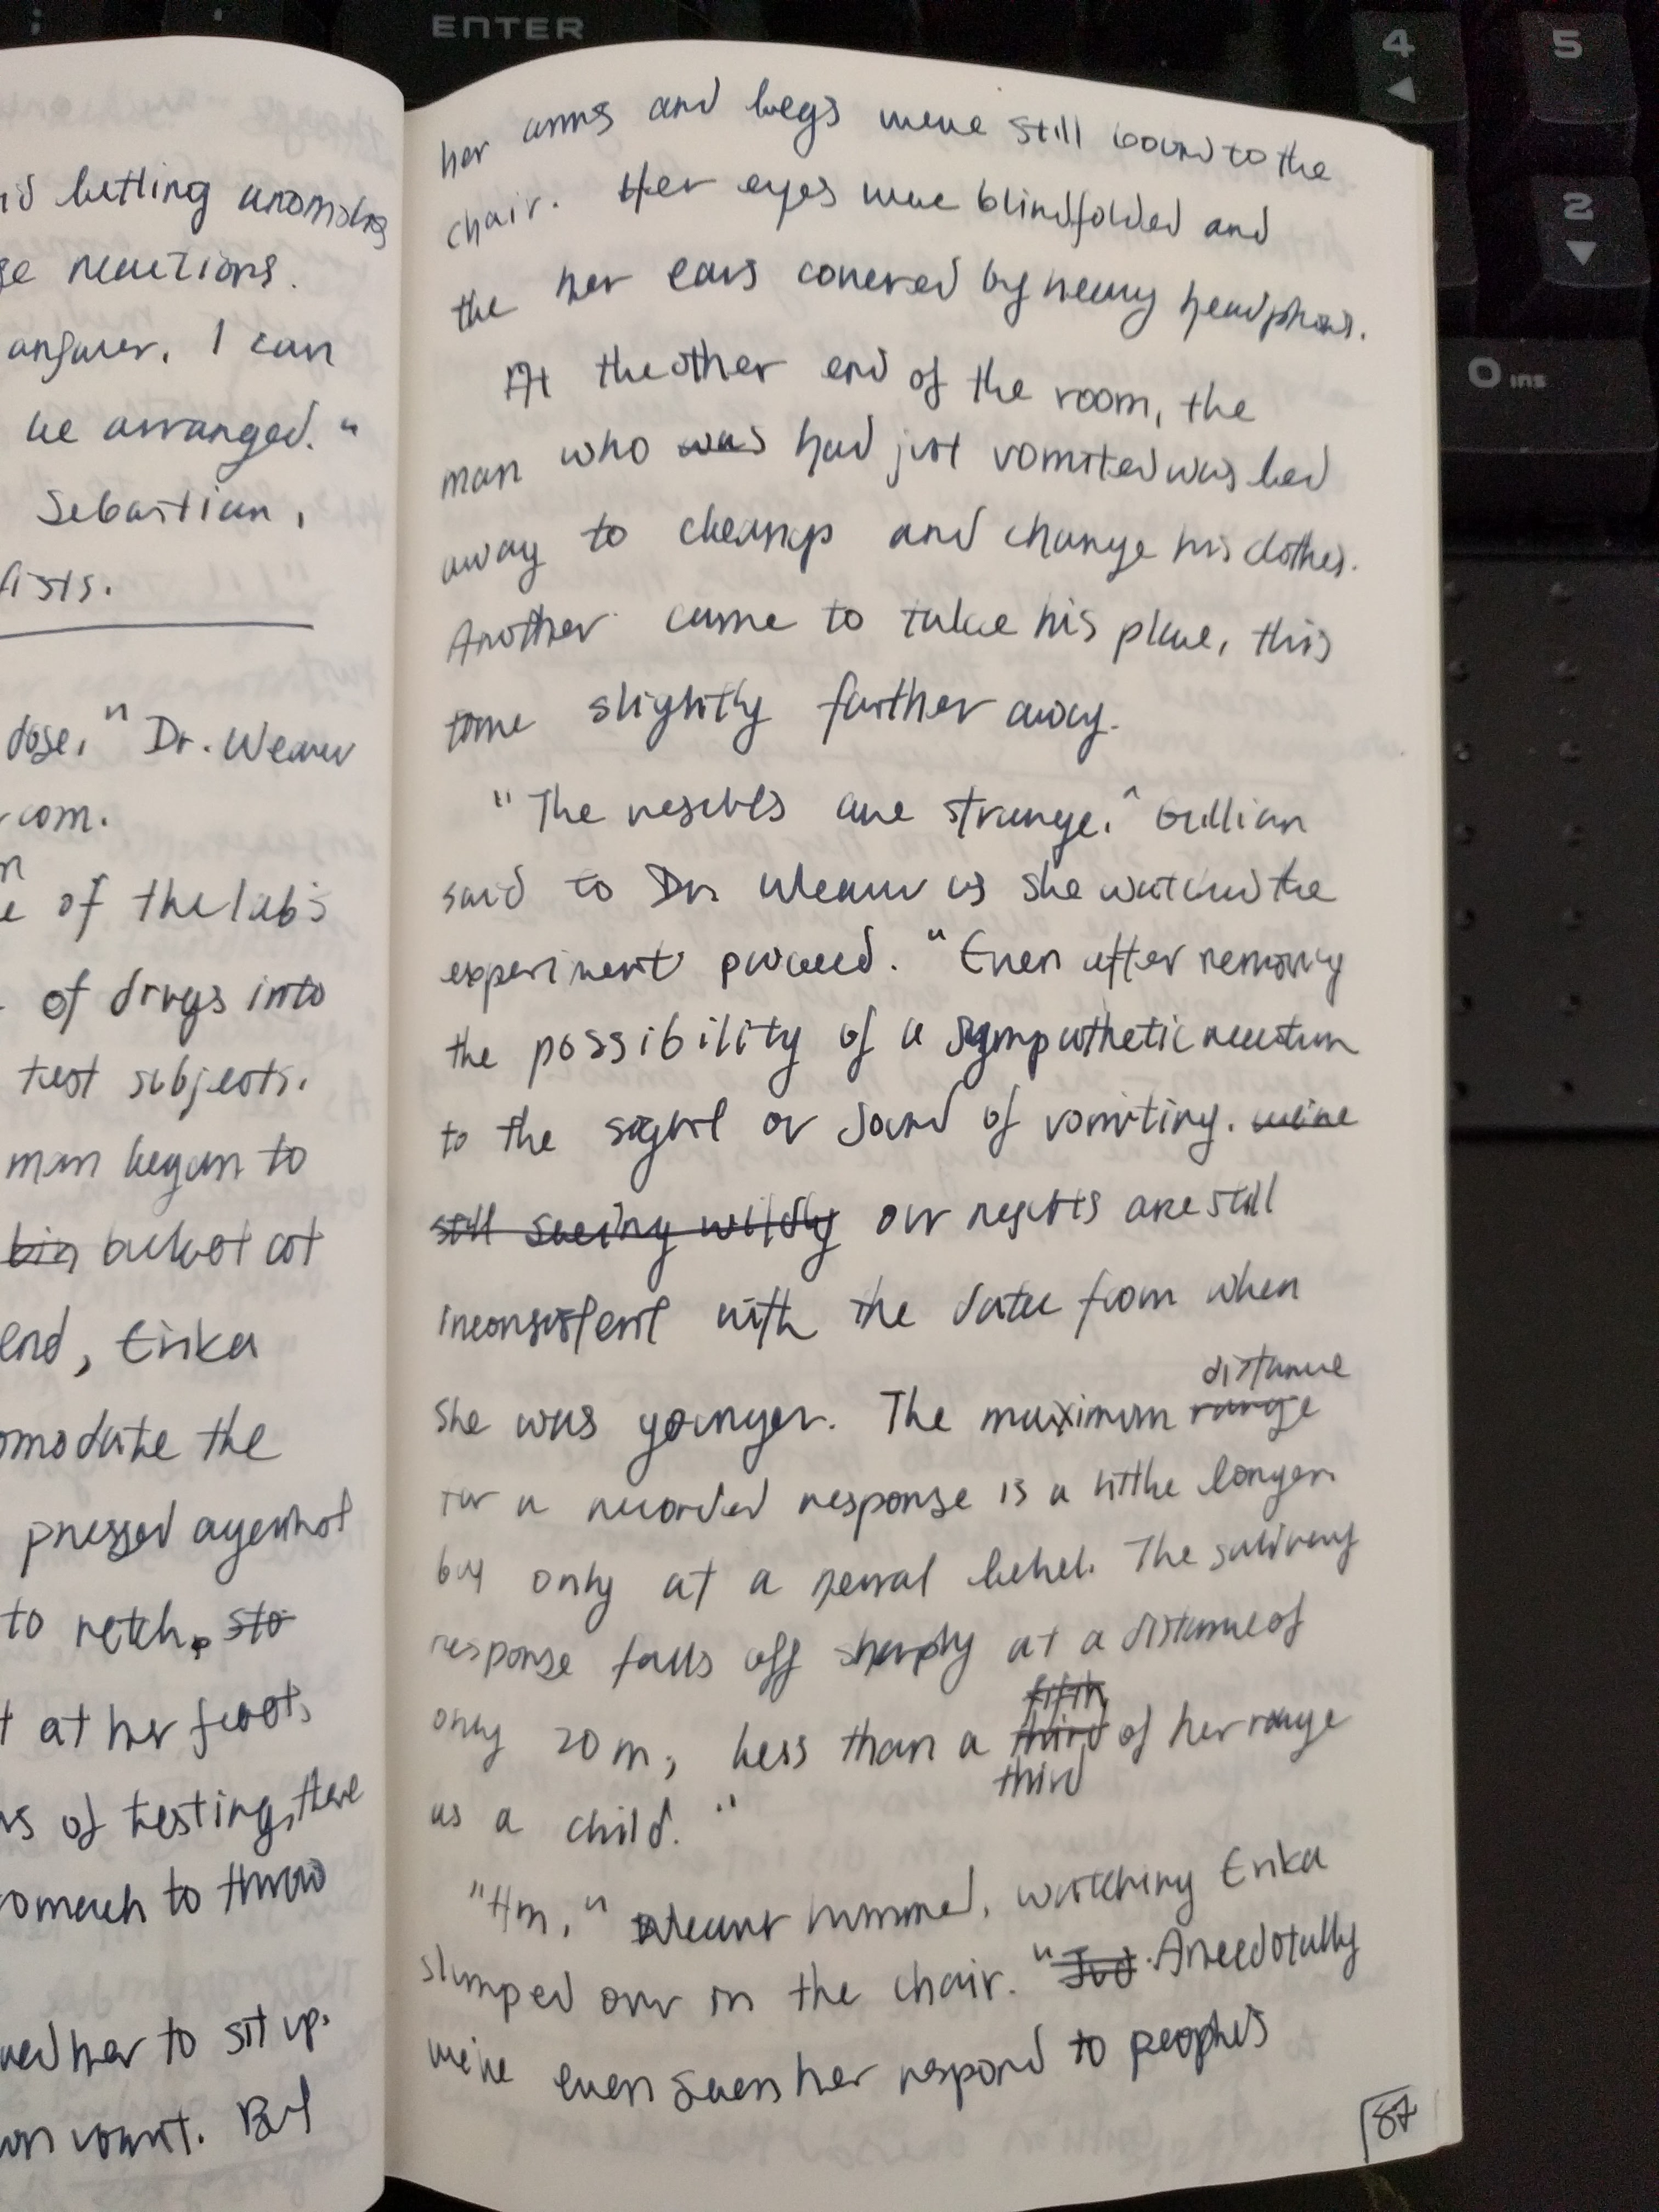 ENTER
4
5
2
0 ins
letting anomalies
reactions.
answer. I can
be arranged."
Sebastian,
fists.
dose," Dr. Weaver
com.
of the lab's
of drugs into
test subjects.
man began to
bin bucket cot
end, Erika
omodate the
pressed against
to retch. sto
at her feet.
of testing, there
omach to throw
her to sit up.
vomit. But
her arms and legs were still bound to the
chair. Her eyes were blindfolded and
the her ears covered by heavy headphones.
At the other end of the room, the
man who was had just vomited was led
away to cleanup and change his clothes.
Another came to take his place, this
time slightly further away.
"The results are strange." Gillian
said to Dr. Weaver as she watched the
experiment proceed. "Even after removing
the possibility of a sympathetic reaction
to the sight or sound of vomiting. we're
still seeing wildly our results are still
inconsistent with the data from when
distance
she was younger. The maximum range
for a recorded response is a little longer
but only at a neural level. The salivary
response falls off sharply at a distance of
fifth
only 20 m, less than a third of her range
third
as a child."
"Hm," Weaver hummed, watching Erika
slumped over in the chair. " Anecdotally
we've even seen her respond to people's
87